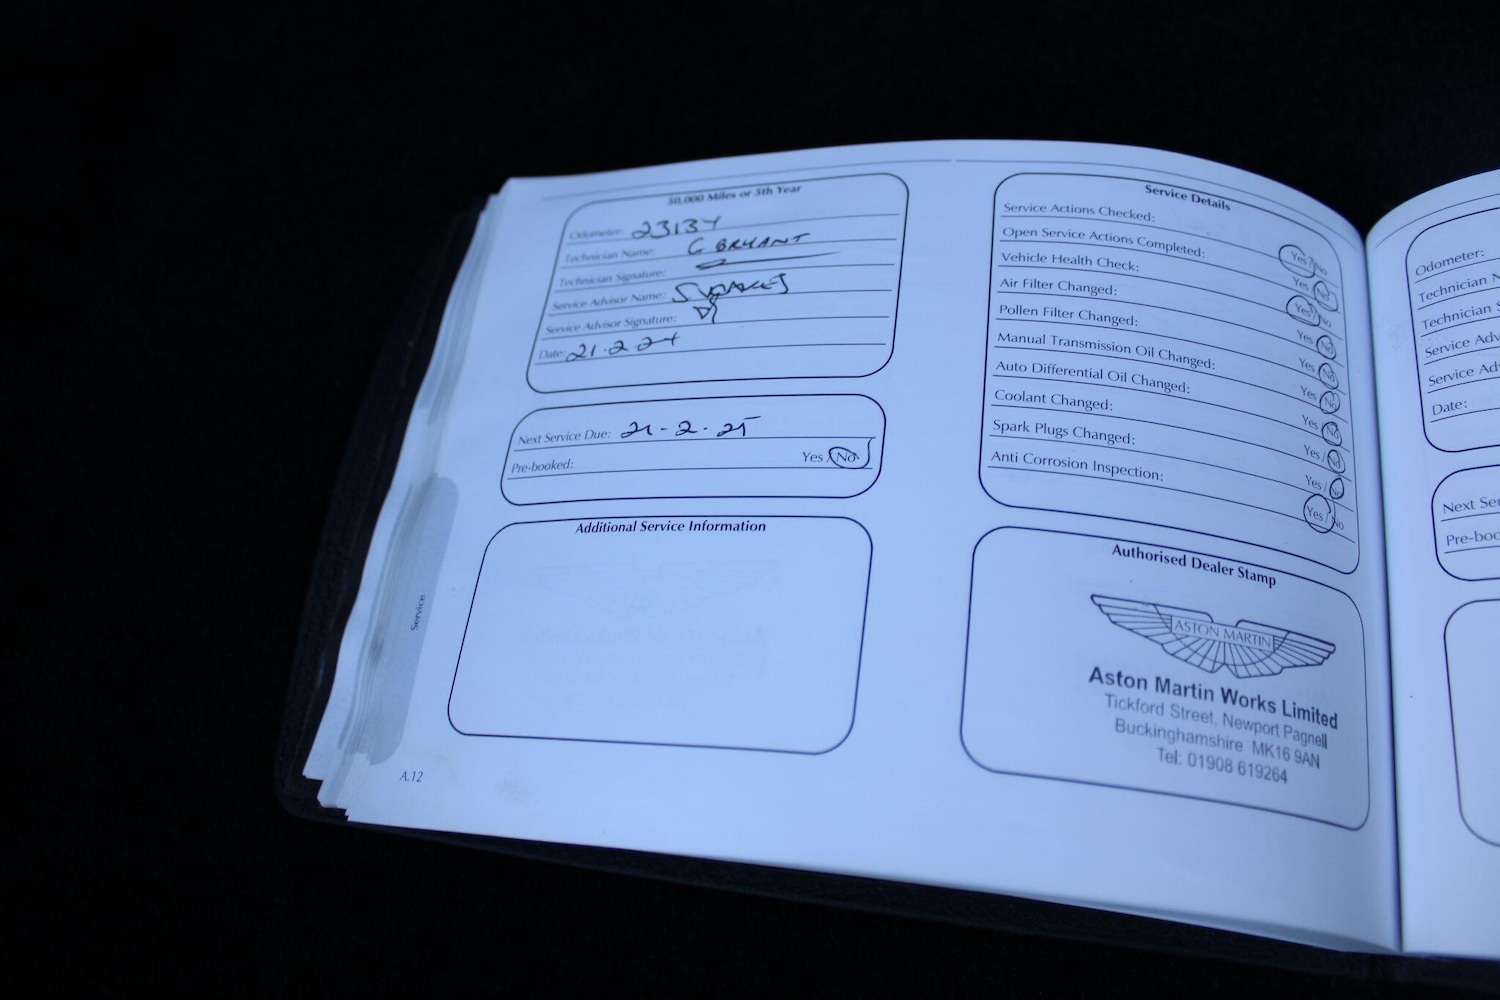 50,000 Miles or 5th Year
Odometer: 23134
Technician Name: G BRYANT
Technician Signature:
Service Advisor Name:
Service Advisor Signature:
Date: 21.2.24
Next Service Due: 21-2-25
Pre-booked: Yes / No
Additional Service Information
Service
A.12
Service Details
Service Actions Checked: Yes / No
Open Service Actions Completed: Yes / No
Vehicle Health Check: Yes / No
Air Filter Changed: Yes / No
Pollen Filter Changed: Yes / No
Manual Transmission Oil Changed: Yes / No
Auto Differential Oil Changed: Yes / No
Coolant Changed: Yes / No
Spark Plugs Changed: Yes / No
Anti Corrosion Inspection: Yes / No
Authorised Dealer Stamp
ASTON MARTIN
Aston Martin Works Limited
Tickford Street, Newport Pagnell
Buckinghamshire MK16 9AN
Tel: 01908 619264
Odometer:
Technician
Technician
Service
Service
Date:
Next